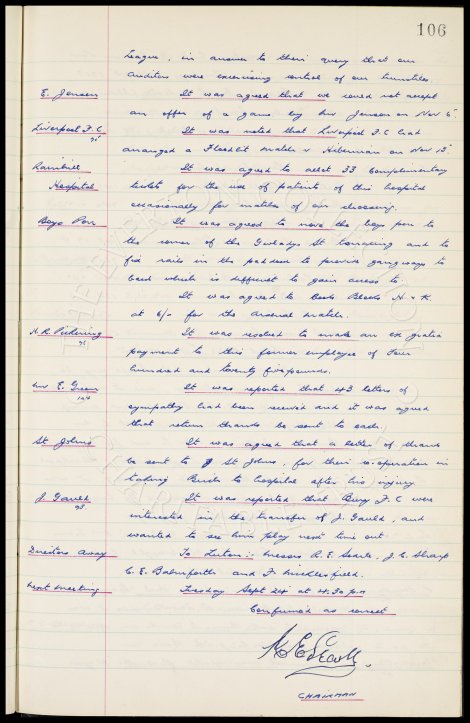 106
League, in answer to their query that our
auditors were exercising control of our turnstiles.
E. Jensen It was agreed that we could not accept
an offer of a game by Mr Jensen on Nov 6
Liverpool F.C It was noted that Liverpool F.C had
arranged a Floodlit match v Hibernian on Nov 13.
Rainhill It was agreed to allot 33 complimentary
Hospital tickets for the use of patients of this hospital
occasionally for matches of our choosing.
Boys Pen It was agreed to move the boys pen to
the corner of the Gwladys St terracing and to
fix rails in the paddock to provide gangways to
card which is difficult to gain access to.
It was agreed to Book Blocks H & K.
at 6/- for the Arsenal match.
N.R. Pickering It was resolved to make an ex gratia
payment to this former employee of Four
hundred and twenty five pounds.
Mr E. Green It was reported that 43 letters of
sympathy had been received and it was agreed
that return thanks be sent to each.
St Johns It was agreed that a letter of thanks
be sent to St Johns, for their co-operation in
taking to hospital after his injury
J. Gauld It was reported that Bury F.C were
interested in the transfer of J. Gauld, and
wanted to see him play next time out.
Directors Away To Luton:- Messrs R.E. Searle, J.C. Sharp
C.E. Balmforth and F. Micklesfield.
Next Meeting Tuesday Sept 24 at 4.30 p.m
Confirmed as correct
CHAIRMAN